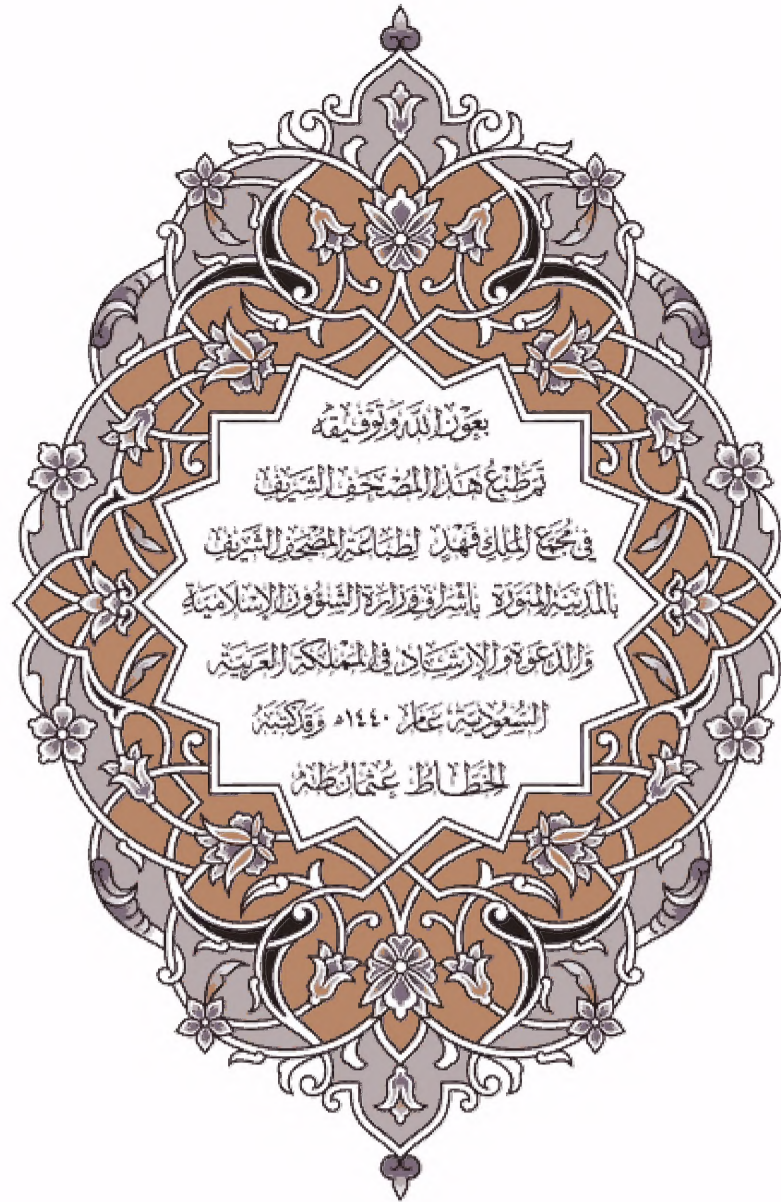 بِعَوْنِ اللَّهِ وَتَوْفِيقِهِ
تَمَّ طَبْعُ هَذَا الْمُصْحَفِ الشَّرِيفِ
فِي مُجَمَّعِ الْمَلِكِ فَهْدٍ لِطِبَاعَةِ الْمُصْحَفِ الشَّرِيفِ
بِالْمَدِينَةِ الْمُنَوَّرَةِ بِإِشْرَافِ وِزَارَةِ الشُّؤُونِ الْإِسْلَامِيَّةِ
وَالدَّعْوَةِ وَالْإِرْشَادِ فِي الْمَمْلَكَةِ الْعَرَبِيَّةِ
السُّعُودِيَّةِ عَامَ ١٤٤٠ه وَقَدْ كَتَبَهُ
الْخَطَّاطُ عُثْمَانُ طٰهَ